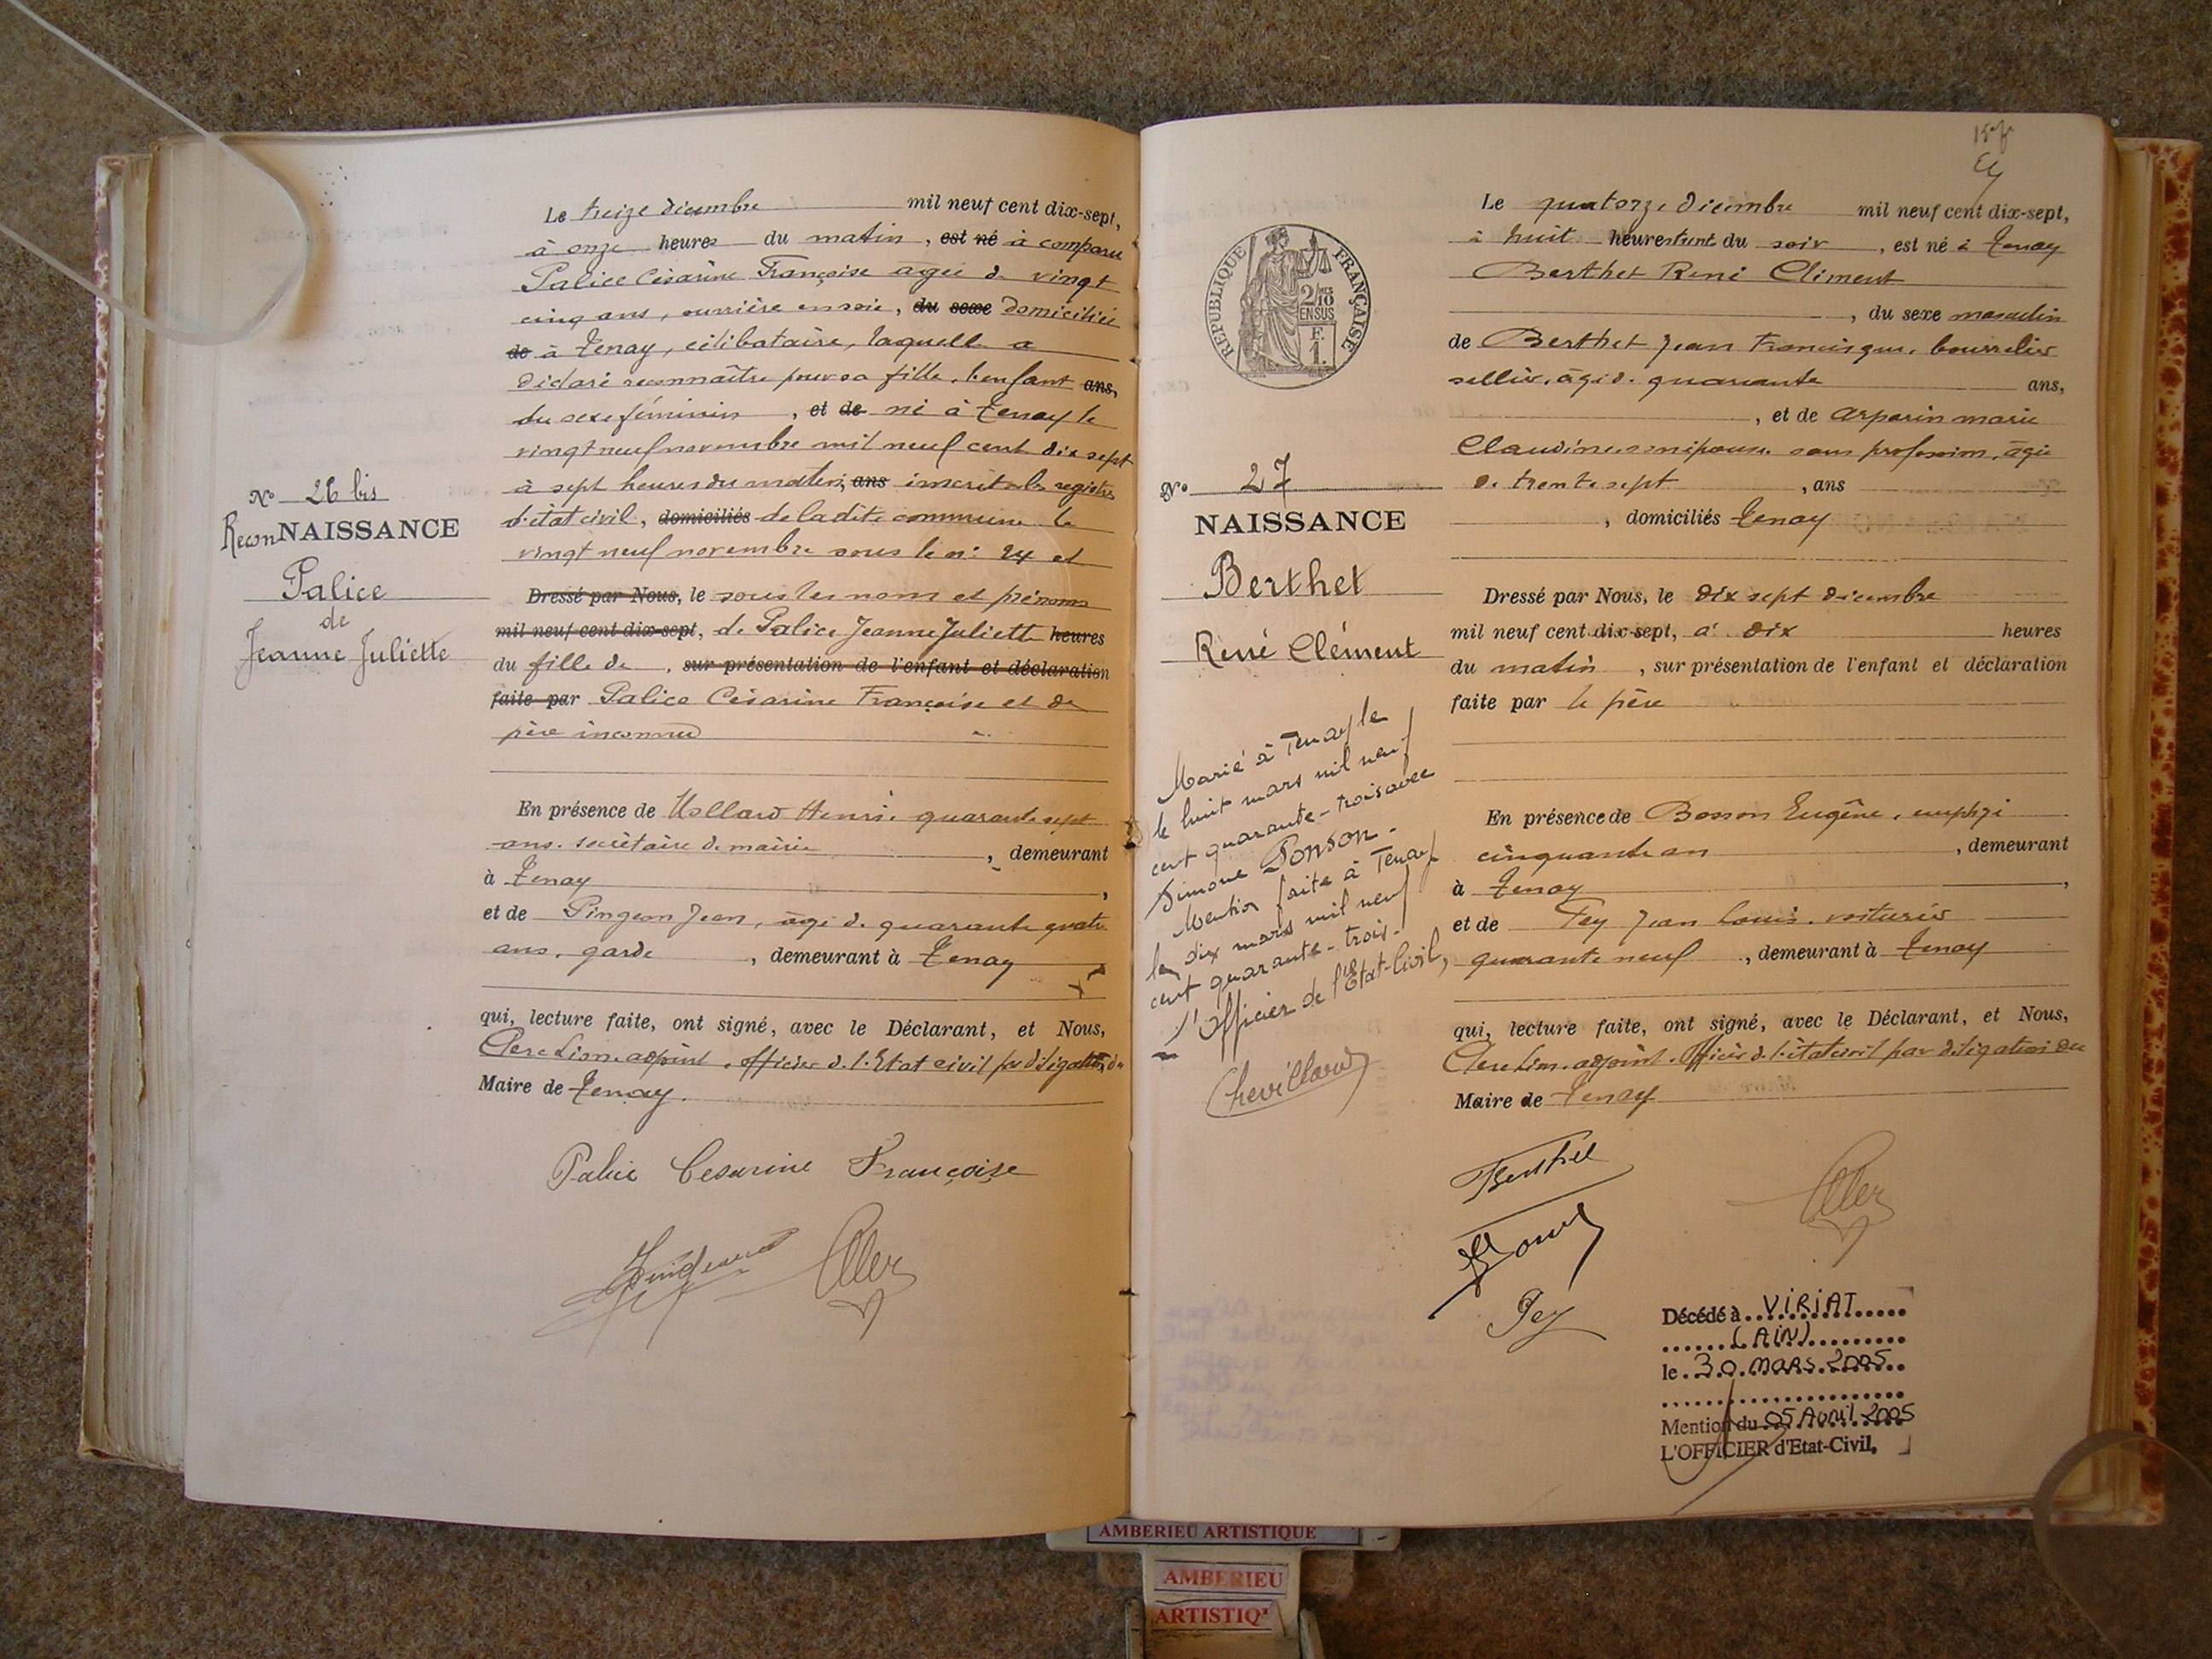 Le treize décembre mil neuf cent dix-sept,
à onze heures du matin, est né à comparu
Palice Césarine Françoise agée de vingt
cinq ans, ouvrière en soie, du sexe domiciliée
de à Tenay, célibataire, laquelle a
déclaré reconnaître pour sa fille, l'enfant ans,
du sexe féminin, et de né à Tenay le
vingt neuf novembre mil neuf cent dix sept
à sept heures du matin, ans inscrit les registres
d'état civil, domiciliés de la dite commune le
vingt neuf novembre sous le n° 24 et
Dressé par Nous, le sous les nom et prénoms
mil neuf cent dix-sept, de Palice Jeanne Juliette heures
du fille de, sur présentation de l'enfant et déclaration
faite par Palice Césarine Françoise et de
père inconnu
N° 26 bis
ReconNAISSANCE
Palice
de
Jeanne Juliette
En présence de Henri, quarante sept
ans, secrétaire de mairie, demeurant
à Tenay,
et de Pingeon Jean, âgé de quarante quatre
ans, garde, demeurant à Tenay
qui, lecture faite, ont signé, avec le Déclarant, et Nous,
Clerc Léon, adjoint, officier de l'Etat civil par délégation du
Maire de Tenay.
Palice Cesarine Françoise
15e f
Le quatorze décembre mil neuf cent dix-sept,
à huit heures du soir, est né à Tenay
Berthet René Clément
, du sexe masculin
de Berthet Jean Francisque, bourrelier
sellier, âgé de quarante ans,
, et de Arparin Marie
Claudine, son épouse, sans profession, âgée
de trente sept, ans
, domiciliés Tenay
REPUBLIQUE FRANÇAISE
2/10MES
EN SUS
F.
1.
N° 27
NAISSANCE
Berthet
René Clément
Dressé par Nous, le dix sept décembre
mil neuf cent dix-sept, à dix heures
du matin, sur présentation de l'enfant et déclaration
faite par le père
Marié à Tenay le
le huit mars mil neuf
cent quarante-trois avec
Simone PONSON.
Mention faite à Tenay
le dix mars mil neuf
cent quarante-trois.
l'Officier de l'Etat-Civil,
Chevillard
En présence de Bosson Eugène, employé
cinquante an, demeurant
à Tenay,
et de Fey Jean Louis, voiturier
quarante neuf, demeurant à Tenay
qui, lecture faite, ont signé, avec le Déclarant, et Nous,
Clerc Léon, adjoint, officier de l'état civil par délégation du
Maire de Tenay
Berthet
Fey
Décédé à VIRIAT
(AIN)
le 30 MARS 2005
Mention du 05 Avril 2005
L'OFFICIER d'Etat-Civil,
AMBERIEU ARTISTIQUE
AMBERIEU
ARTISTIQ